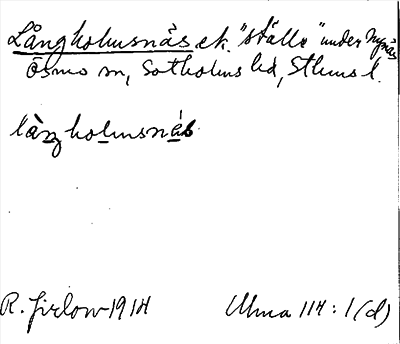 Långholmsnäs ek. "ställe" under Nynäs
Ösmo sn, Sotholms hd, Sthms l.
làŋholmsnǽs
R. Jirlow 1914
Ulma 114:1 (d)